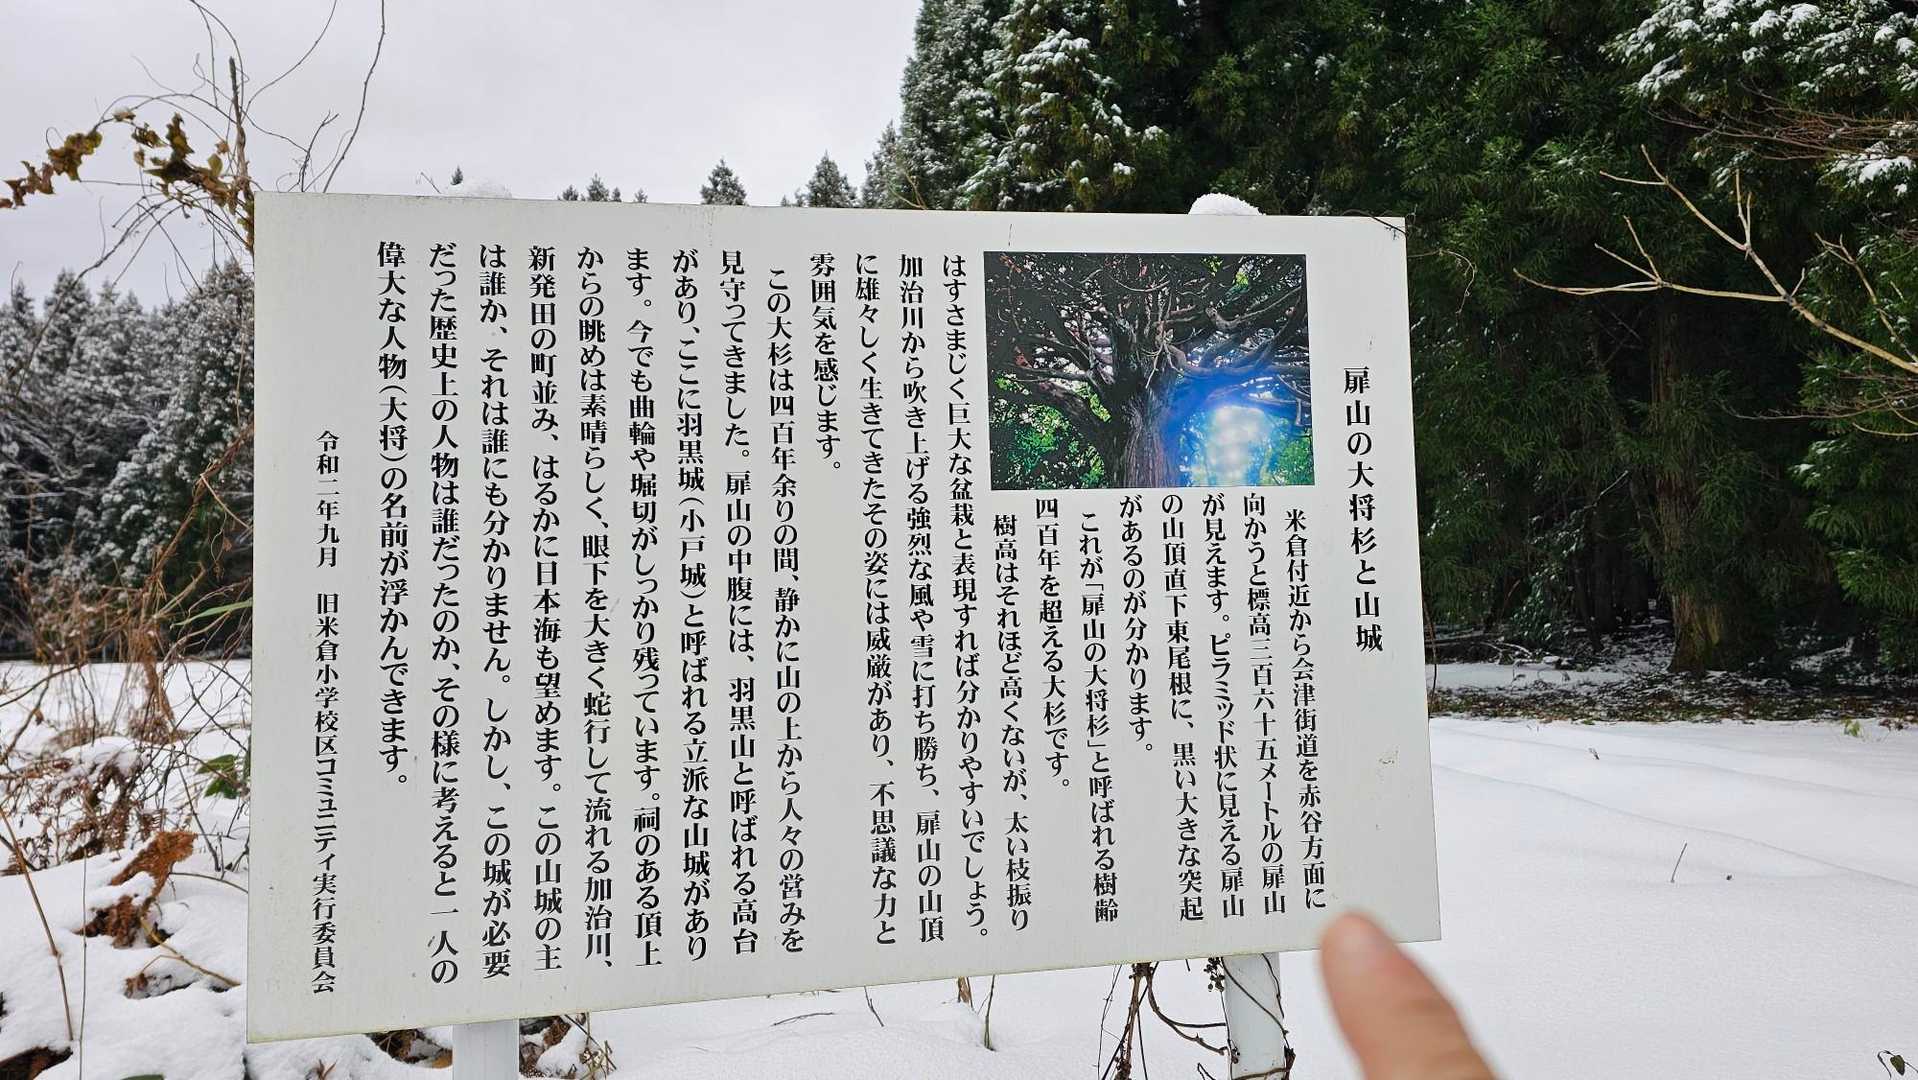 扉山の大将杉と山城
米倉付近から会津街道を赤谷方面に
向かうと標高三百六十五メートルの扉山
が見えます。ピラミッド状に見える扉山
の山頂直下東尾根に、黒い大きな突起
があるのが分かります。
これが「扉山の大将杉」と呼ばれる樹齢
四百年を超える大杉です。
樹高はそれほど高くないが、太い枝振り
はすさまじく巨大な盆栽と表現すれば分かりやすいでしょう。
加治川から吹き上げる強烈な風や雪に打ち勝ち、扉山の山頂
に雄々しく生きてきたその姿には威厳があり、不思議な力と
雰囲気を感じます。
この大杉は四百年余りの間、静かに山の上から人々の営みを
見守ってきました。扉山の中腹には、羽黒山と呼ばれる高台
があり、ここに羽黒城(小戸城)と呼ばれる立派な山城があり
ます。今でも曲輪や堀切がしっかり残っています。祠のある頂上
からの眺めは素晴らしく、眼下を大きく蛇行して流れる加治川、
新発田の町並み、はるかに日本海も望めます。この山城の主
は誰か、それは誰にも分かりません。しかし、この城が必要
だった歴史上の人物は誰だったのか、その様に考えると一人の
偉大な人物(大将)の名前が浮かんできます。
令和二年九月 旧米倉小学校区コミュニティ実行委員会